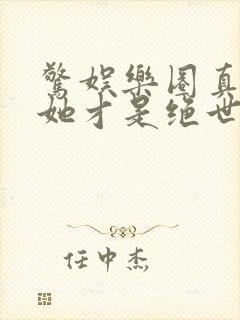 驚娛樂圈真
她才是絕世
任中杰